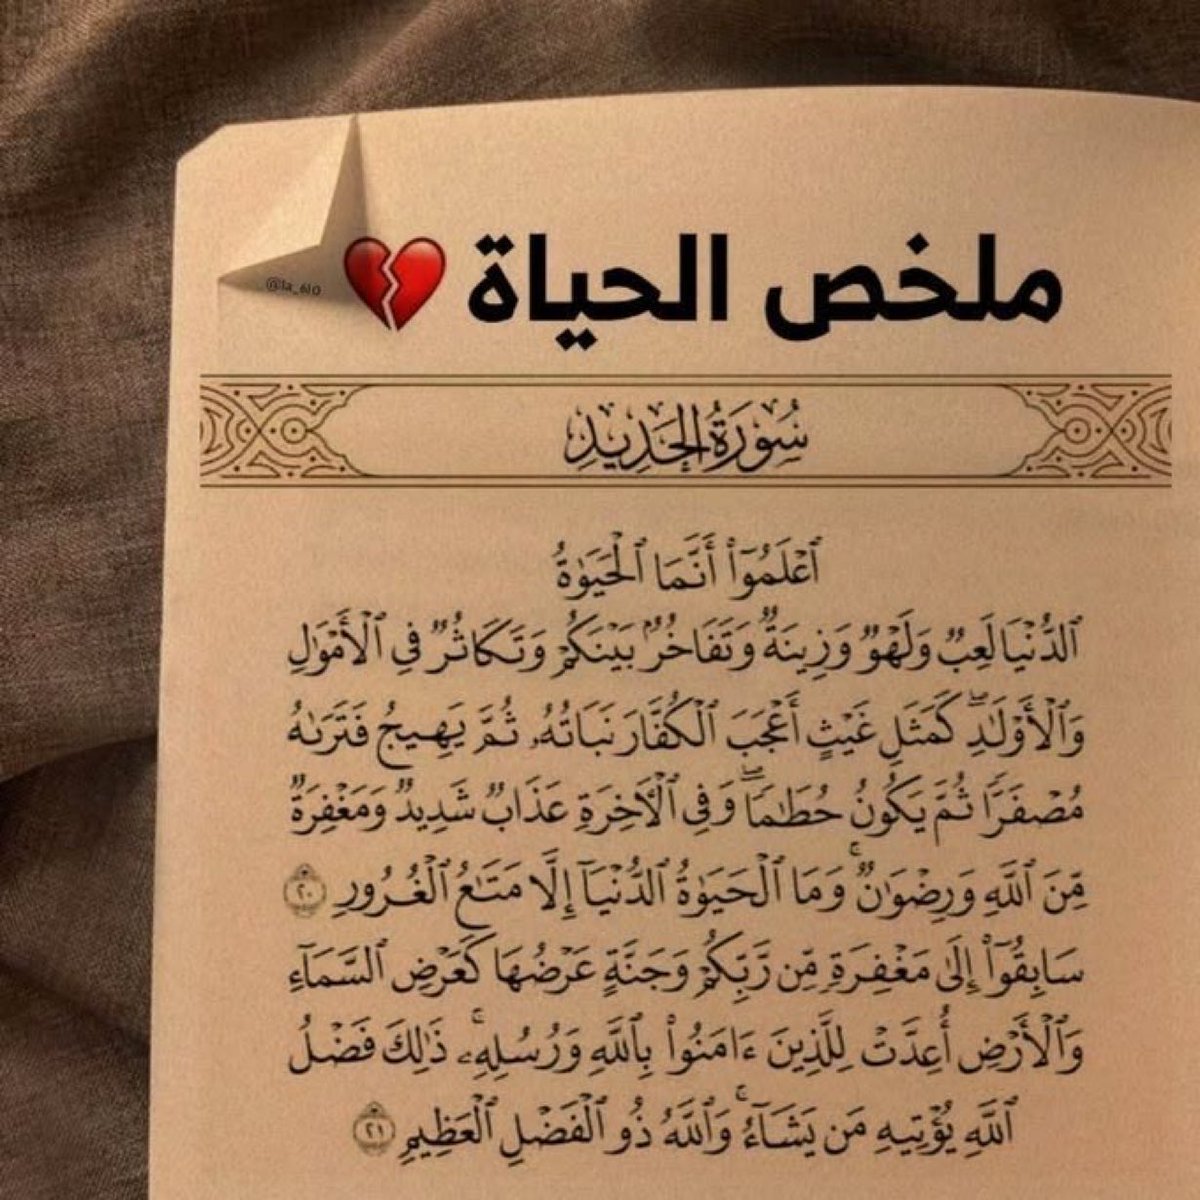 ملخص الحياة 💔
@la_6l0
سُورَةُ الحَدِيدِ
ٱعۡلَمُوٓاْ أَنَّمَا ٱلۡحَيَوٰةُ
ٱلدُّنۡيَا لَعِبٞ وَلَهۡوٞ وَزِينَةٞ وَتَفَاخُرُۢ بَيۡنَكُمۡ وَتَكَاثُرٞ فِي ٱلۡأَمۡوَٰلِ
وَٱلۡأَوۡلَٰدِۖ كَمَثَلِ غَيۡثٍ أَعۡجَبَ ٱلۡكُفَّارَ نَبَاتُهُۥ ثُمَّ يَهِيجُ فَتَرَىٰهُ
مُصۡفَرّٗا ثُمَّ يَكُونُ حُطَٰمٗاۖ وَفِي ٱلۡأٓخِرَةِ عَذَابٞ شَدِيدٞ وَمَغۡفِرَةٞ
مِّنَ ٱللَّهِ وَرِضۡوَٰنٞۚ وَمَا ٱلۡحَيَوٰةُ ٱلدُّنۡيَآ إِلَّا مَتَٰعُ ٱلۡغُرُورِ ٢٠
سَابِقُوٓاْ إِلَىٰ مَغۡفِرَةٖ مِّن رَّبِّكُمۡ وَجَنَّةٍ عَرۡضُهَا كَعَرۡضِ ٱلسَّمَآءِ
وَٱلۡأَرۡضِ أُعِدَّتۡ لِلَّذِينَ ءَامَنُواْ بِٱللَّهِ وَرُسُلِهِۦۚ ذَٰلِكَ فَضۡلُ
ٱللَّهِ يُؤۡتِيهِ مَن يَشَآءُۚ وَٱللَّهُ ذُو ٱلۡفَضۡلِ ٱلۡعَظِيمِ ٢١